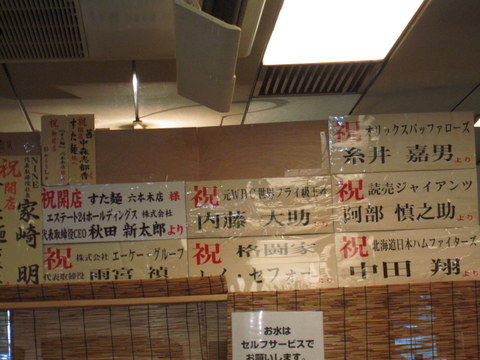 祝
オリックスバッファローズ
糸井 嘉男
より
祝開店 すた麺 六本木店 様
エステート24ホールディングス 株式会社
代表取締役CEO 秋田 新太郎 より
祝
元WBC世界フライ級王者
内藤 大助
より
祝 読売ジャイアンツ
阿部 慎之助
より
祝
開店
家崎 明
祝
株式会社 エーケー・グループ
代表取締役 雨宮 禎
祝
格闘家
レイ・セフォー
祝
北海道日本ハムファイターズ
中田 翔
より
お水は
セルフサービスで
お願いします。